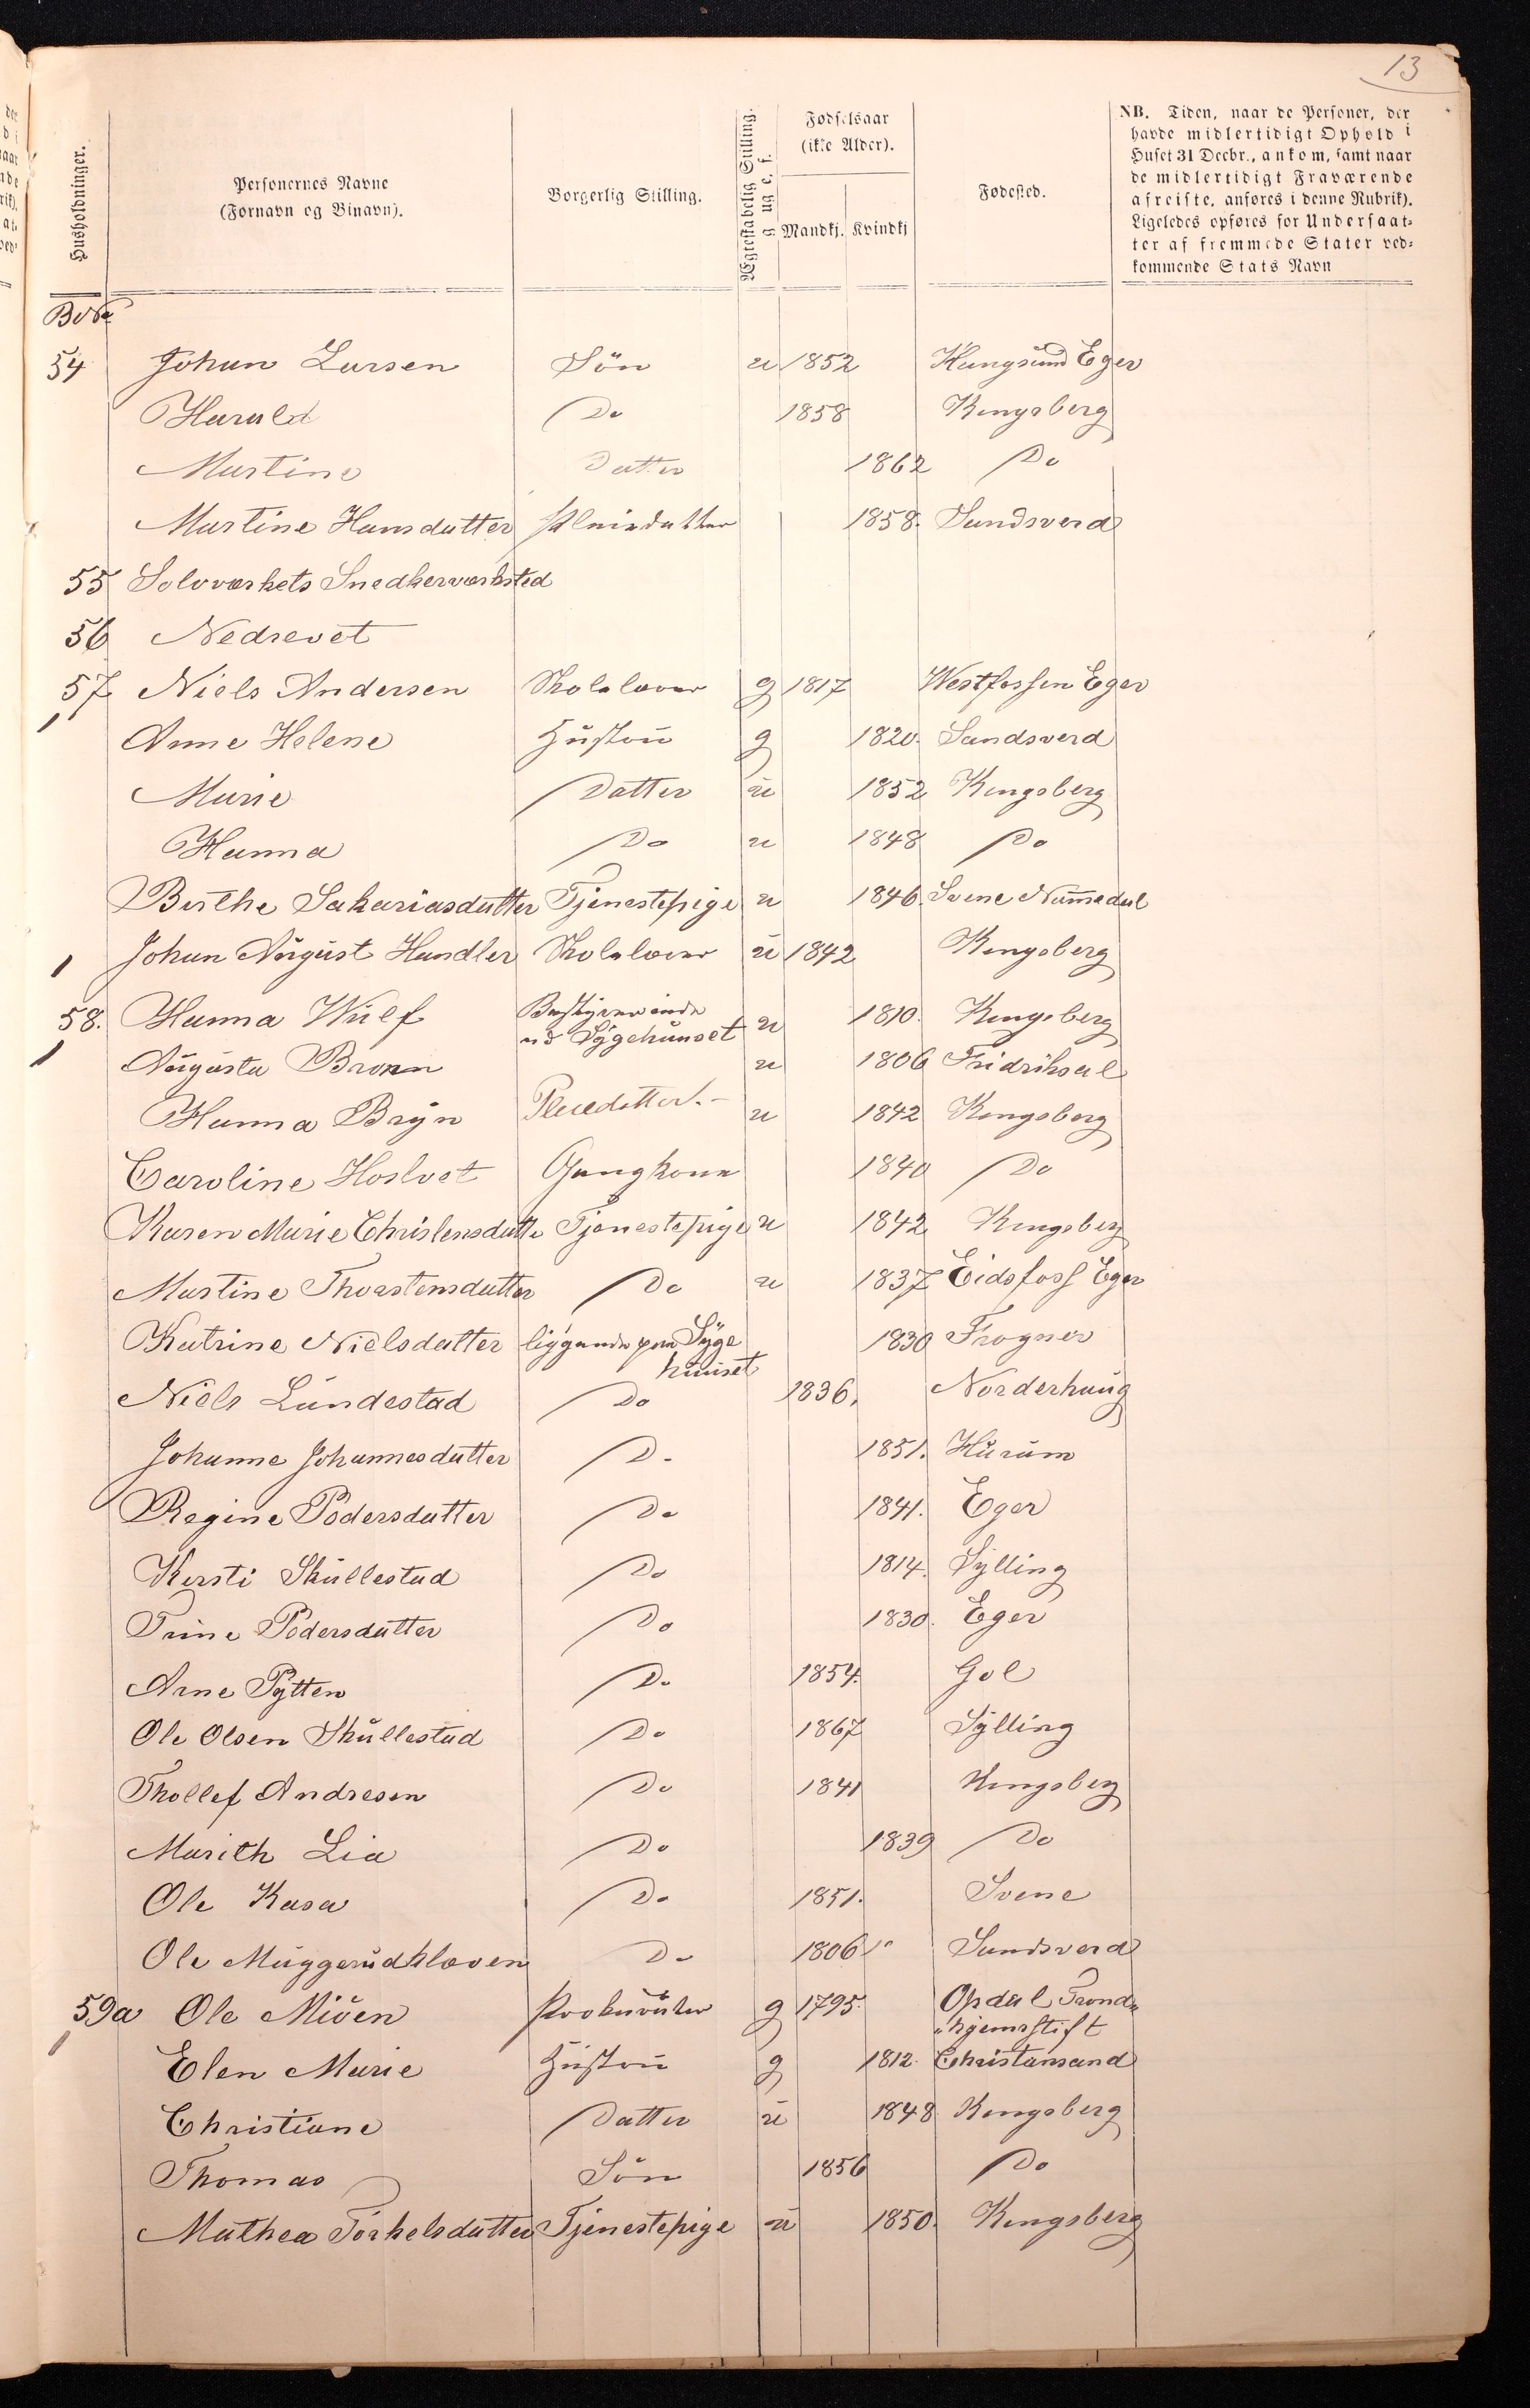 13
Husholdninger.
Personernes Navne
(Fornavn og Binavn).
Borgerlig Stilling.
Ægteskabelig Stilling.
g. ug. e. f.
Fødselsaar
(ikke Alder).
Mandkj. Kvindkj
Fødested.
NB. Tiden, naar de Personer, der
havde midlertidigt Ophold i
Huset 31 Decbr., ankom, samt naar
de midlertidigt Fraværende
afreiste, anføres i denne Rubrik).
Ligeledes opføres for Undersaat-
ter af fremmede Stater ved-
kommende Stats Navn
54 Johan Larsen Sön u 1852 Haugsund Eger
Harald Do 1858 Kongsberg
Martine Datter 1862 Do
Martine Hansdatter Pleiedatter 1858. Sandsverd
55 Solvværkets Snedkerværksted
56 Nedrevet
57 Niels Andersen Skolelærer g 1817 Westfossen Eger
1
Anne Helene Hustru g 1820. Sandsverd
Marie Datter u 1852 Kongsberg
Hanna Do u 1848 Do
Berthe Sakariasdatter Tjenestepige u 1846. Svene Nummedal
1 Johan August Handler Skolelærer u 1842 Kongsberg
58. Hanna Wulf Bestyrerinde
ved Sygehuuset u 1810. Kongsberg
1 Augusta Bronn u 1806 Fridriksal
Hanna Bryn Pleiedatter.- u 1842 Kongsberg
Caroline Hoslvet Gangkone 1840 Do
Karen Marie Christensdatte Tjenestepige u 1842 Kongsberg
Martine Thorstensdatter Do u 1837 Eidsfoss Eger
Katrine Nielsdatter liggende paa Syge
huuset 1830 Frogner
Niels Lundestad Do 1836. Norderhaug
Johanne Johannesdatter D. 1851. Hurum
Regine Pedersdatter Do 1841. Eger
Kersti Skullestad Do 1814. Sylling
Trine Pedersdatter Do 1830. Eger
Arne Pytten Do 1854. Gol
Ole Olsen Skullestad Do 1867 Sylling
Thollef Andresen Do 1841 Kongsberg
Marith Lia Do 1839 Do
Ole Kasa Do 1851. Svene
Ole Muggerudkleven Do 1806 Sandsverd
59a Ole Miøen Prokurator g 1795. Opdal Trond-
hjemsstift
1
Elen Marie Hustru g 1812. Christansand
Christiane Datter u 1848 Kongsberg
Thomas Sön 1856 Do
Mathea Torkelsdatter Tjenestepige u 1850. Kongsberg